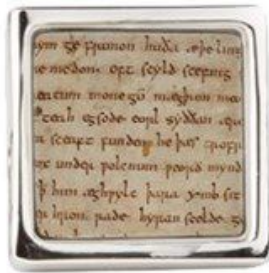 ym ge frunon huða æþe ling
e medon. oft scyld scefing
eatum monegū mægþum meo
teah egsode eorl syððan ære
sceaft funden he þæs frofr
x under ƿolcnum ƿeorð mynd
ꝥ him æghƿylc þara ymb sit
r hron rade hyran scolde g